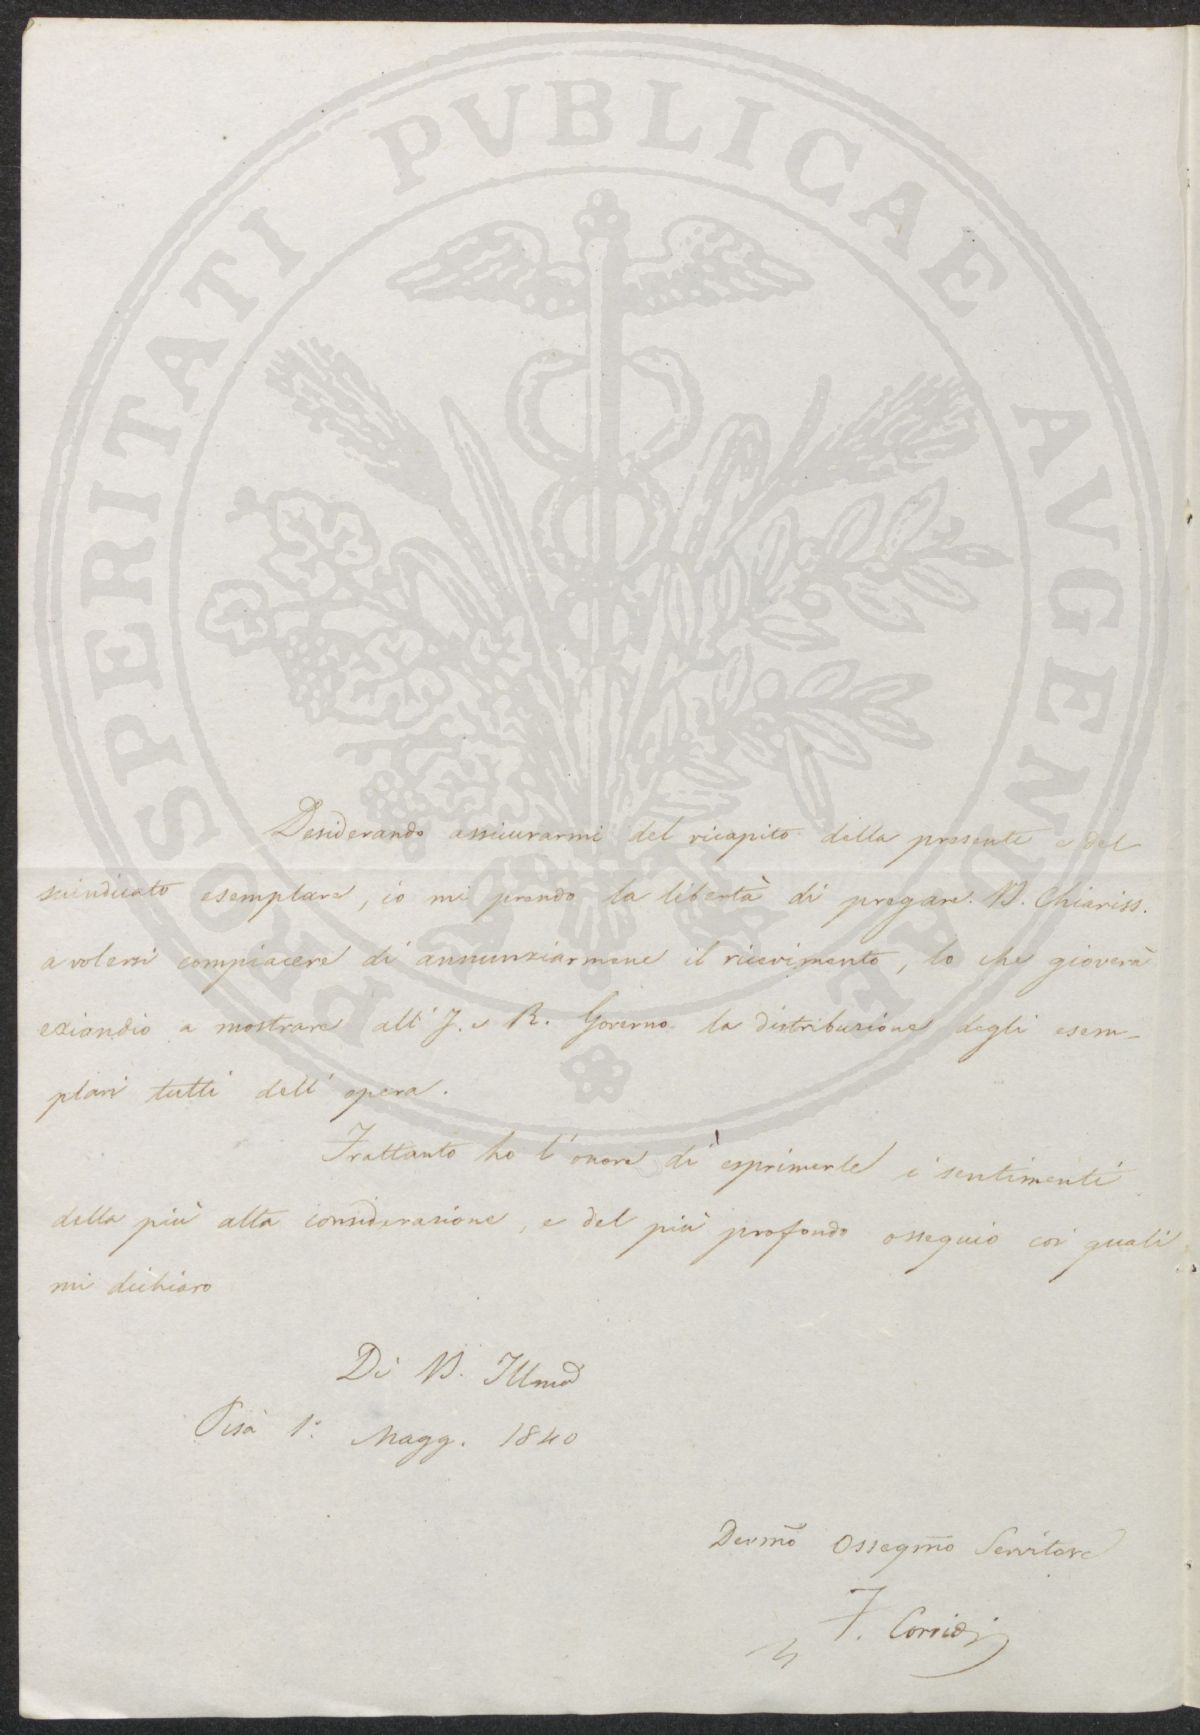 PROSPERITATI PVBLICAE AVGENDAE
Desiderando assicurarmi del ricapito della presente e del
suindicato esemplare, io mi prendo la libertà di pregare V. Chiariss.
a volersi compiacere di annunziarmene il ricevimento, lo che gioverà
eziandio a mostrare all' I. e R. Governo la distribuzione degli esem-
plari tutti dell' opera.
Frattanto ho l' onore di esprimerle i sentimenti
della più alta considerazione, e del più profondo ossequio coi quali
mi dichiaro
Di V. Illma
Pisa 1º. Magg. 1840
Devmõ Osseqmõ Servitore
F. Corridi